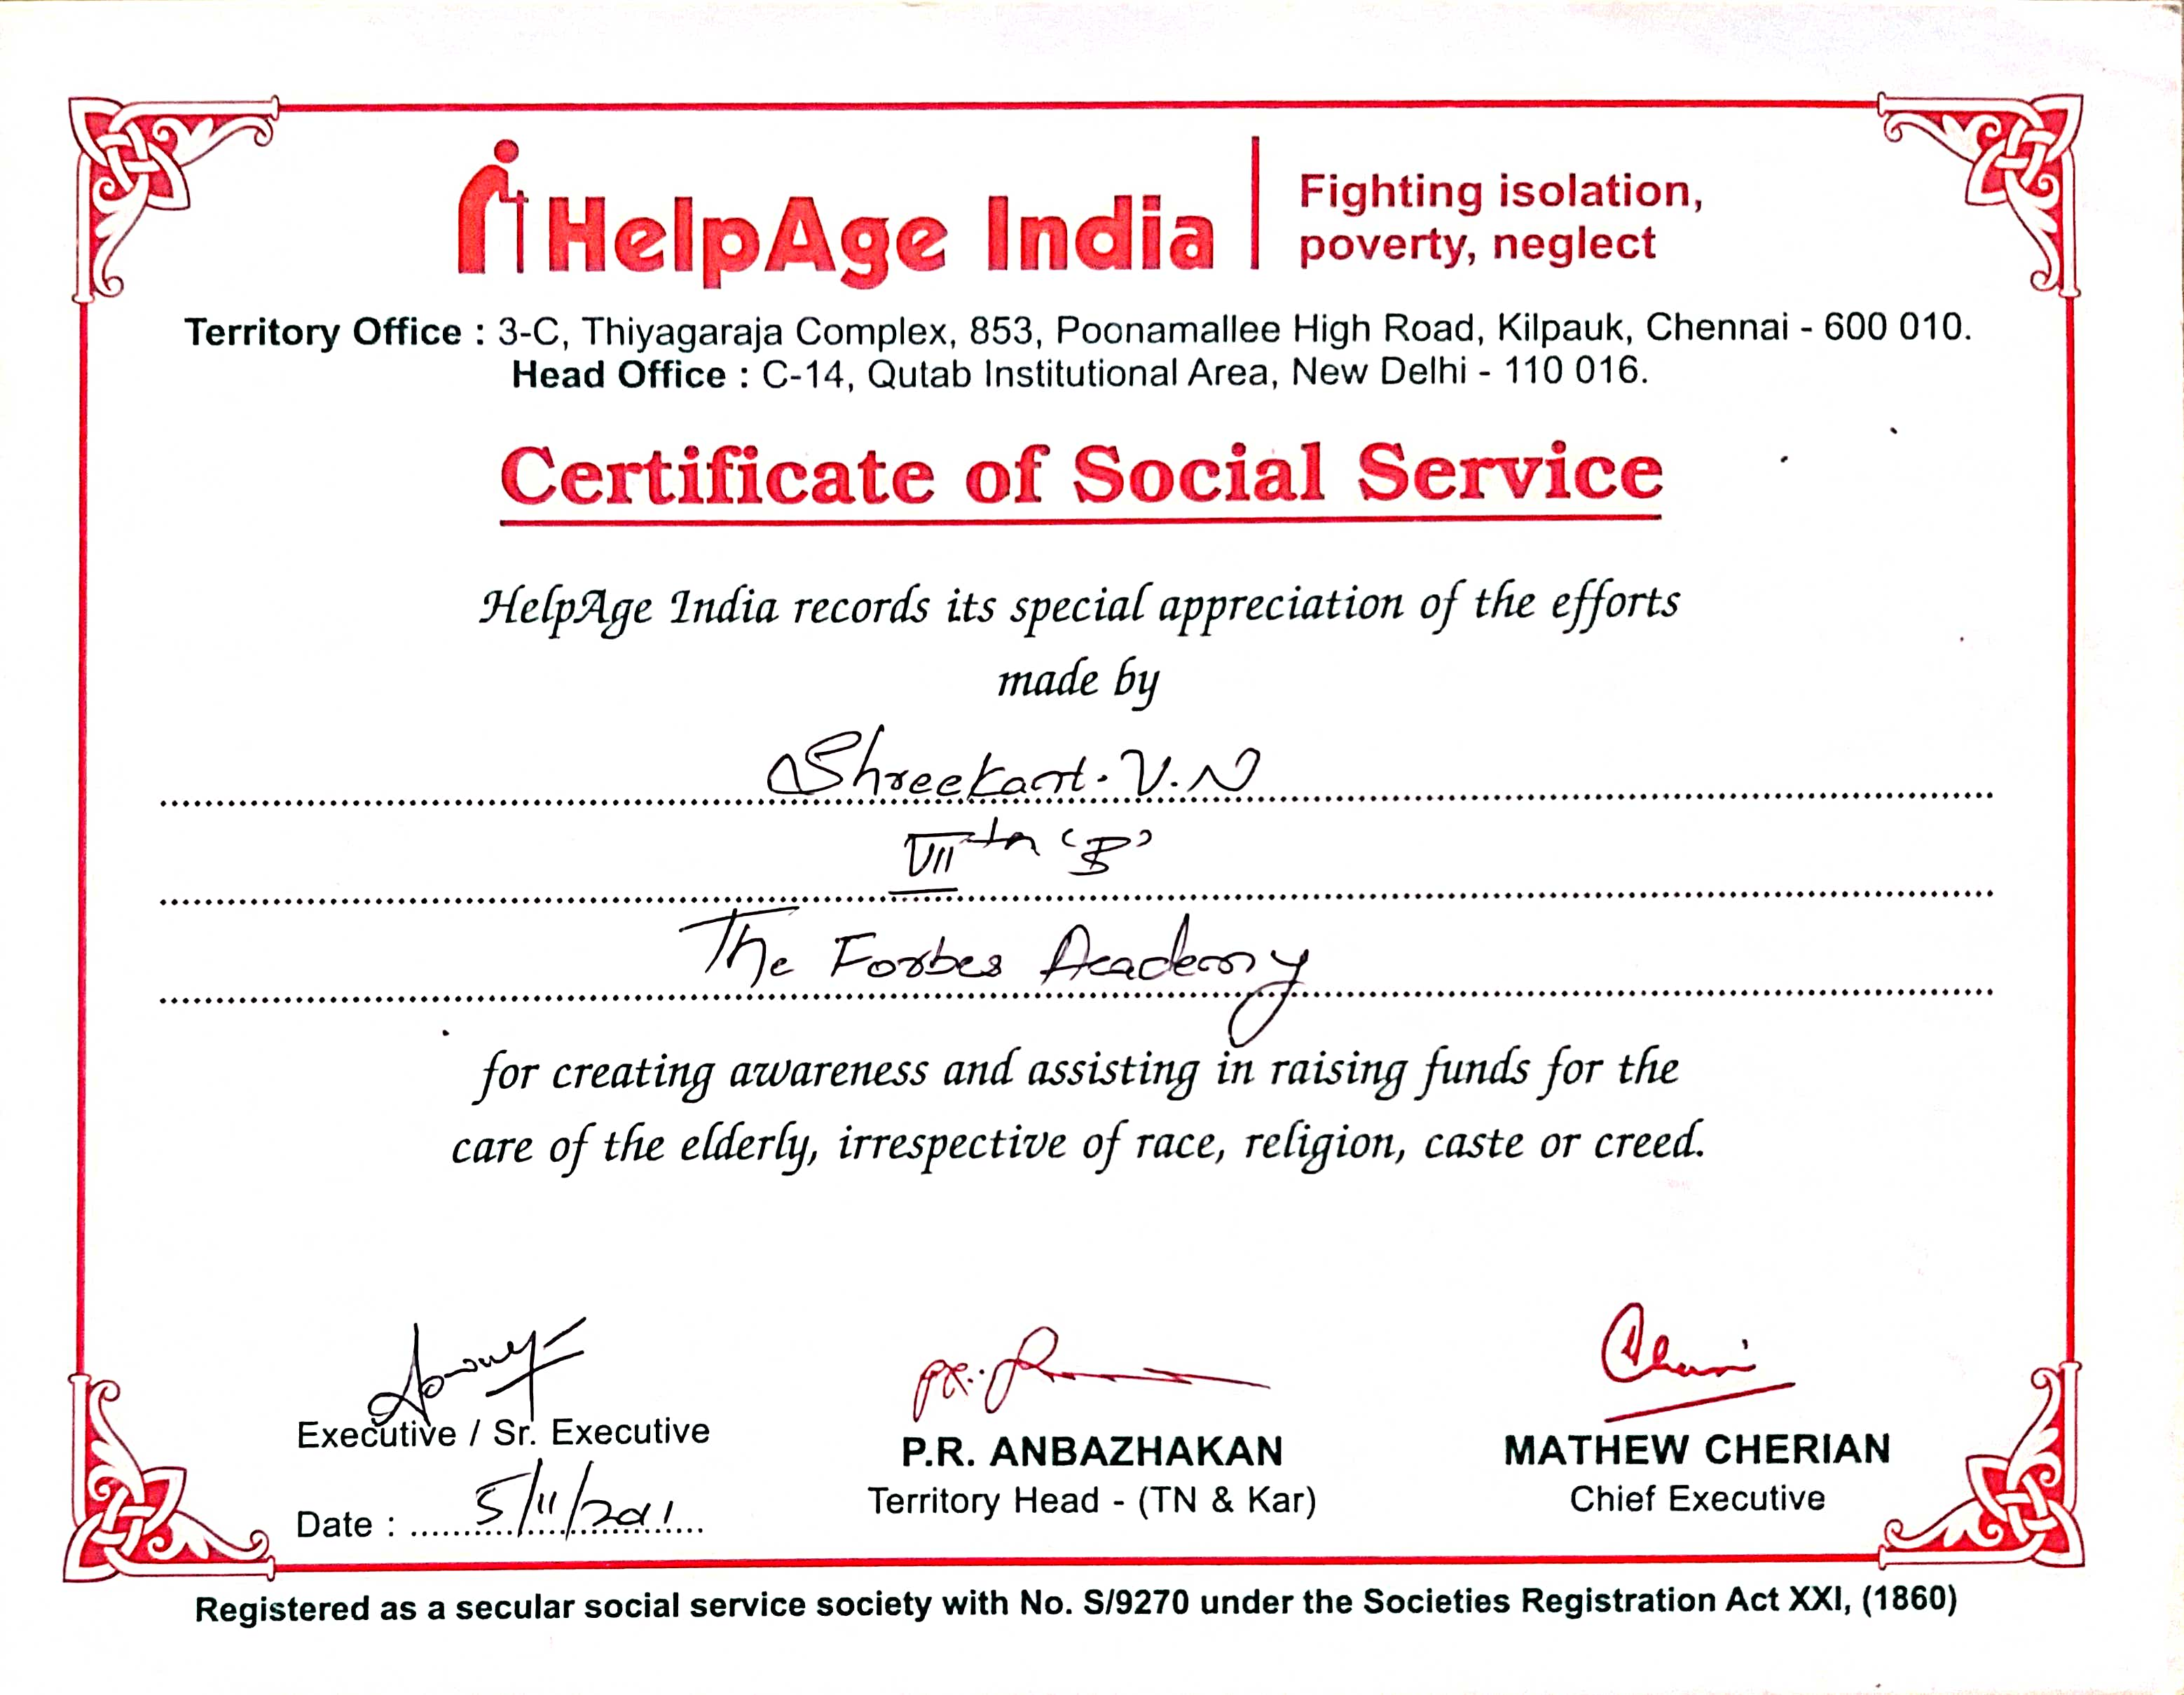 HelpAge India
Fighting isolation,
poverty, neglect
Territory Office : 3-C, Thiyagaraja Complex, 853, Poonamallee High Road, Kilpauk, Chennai - 600 010.
Head Office : C-14, Qutab Institutional Area, New Delhi - 110 016.
Certificate of Social Service
HelpAge India records its special appreciation of the efforts
made by
Shreekant. V. N
VIIth 'B'
The Forbes Academy
for creating awareness and assisting in raising funds for the
care of the elderly, irrespective of race, religion, caste or creed.
Executive / Sr. Executive
Date : 5/11/2011
P.R. ANBAZHAKAN
Territory Head - (TN & Kar)
MATHEW CHERIAN
Chief Executive
Registered as a secular social service society with No. S/9270 under the Societies Registration Act XXI, (1860)